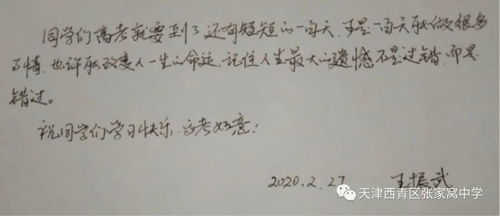 同学们高考就要到了还有短短的一百天,可是一百天能做很多
事情,也许能改变人一生的命运,记住人生最大的遗憾不是过错,而是
错过。
祝同学们学习快乐,高考如意!
2020.2.27 王振武
天津西青区张家窝中学